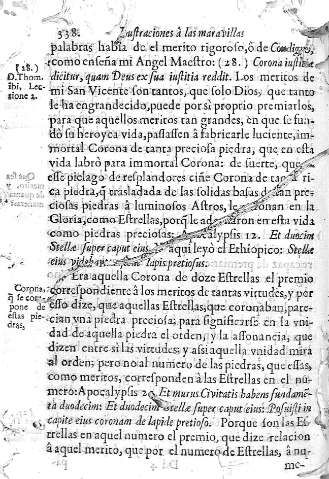 338. Ilustraciones à las maravillas
palabras habla de el merito rigoroso, ò de Condigno,
como enseña mi Angel Maestro: (28.) Corona iustitiæ
dicitur, quam Deus ex sua iustitia reddit. Los meritos de
mi San Vicente son tantos, que solo Dios, que tanto
le ha engrandecido, puede por si proprio premiarlos,
para que aquellos meritos tan grandes, en que se fun-
dò su heroyca vida, passassen à fabricarle luciente, im-
mortal Corona de tanta preciosa piedra, que en esta
vida labrò para immortal Corona: de suerte, que
esse pielago de resplandores ciñe Corona de tan ri-
ca piedra, q̃ trasladada de las solidas basas de tan pre-
ciosas piedras à luminosos Astros, le coronan en la
Gloria, como Estrellas, porq̃ le adoraron en esta vida
como piedras preciosas: Apocalypsis 12. Et duncim
Stellæ super caput eius aqui leyò el Ethiopico: Stellæ
eius lapis pretiosus.
Era aquella Corona de doze Estrellas el premio
correspondiente à los meritos de tantas virtudes, y por
esso dize, que aquellas Estrellas, que coronaban, pare-
cian vna piedra preciosa; para significarse en la vni-
dad de aquella piedra el orden, y la assonancia, que
dizen entre si las virtudes; y assi aquella vnidad mira
al orden; pero no al numero de las piedras, que essas,
como meritos, corresponden à las Estrellas en el nu-
mero: Apocalypsis 20. Et murus Civitatis habens fundamē-
ta duodecim: Et duodecim Stellæ super caput eius: Posuisti in
capite eius coronam de lapide pretioso. Porque son las Es-
trellas en aquel numero el premio, que dize relacion
à aquel merito, que por el numero de Estrellas, à nu-
me-
(28.)
D. Thom.
ibi, Lec-
tione 2.
Corona,
q̃ se com-
pone de
estas pie-
dras,